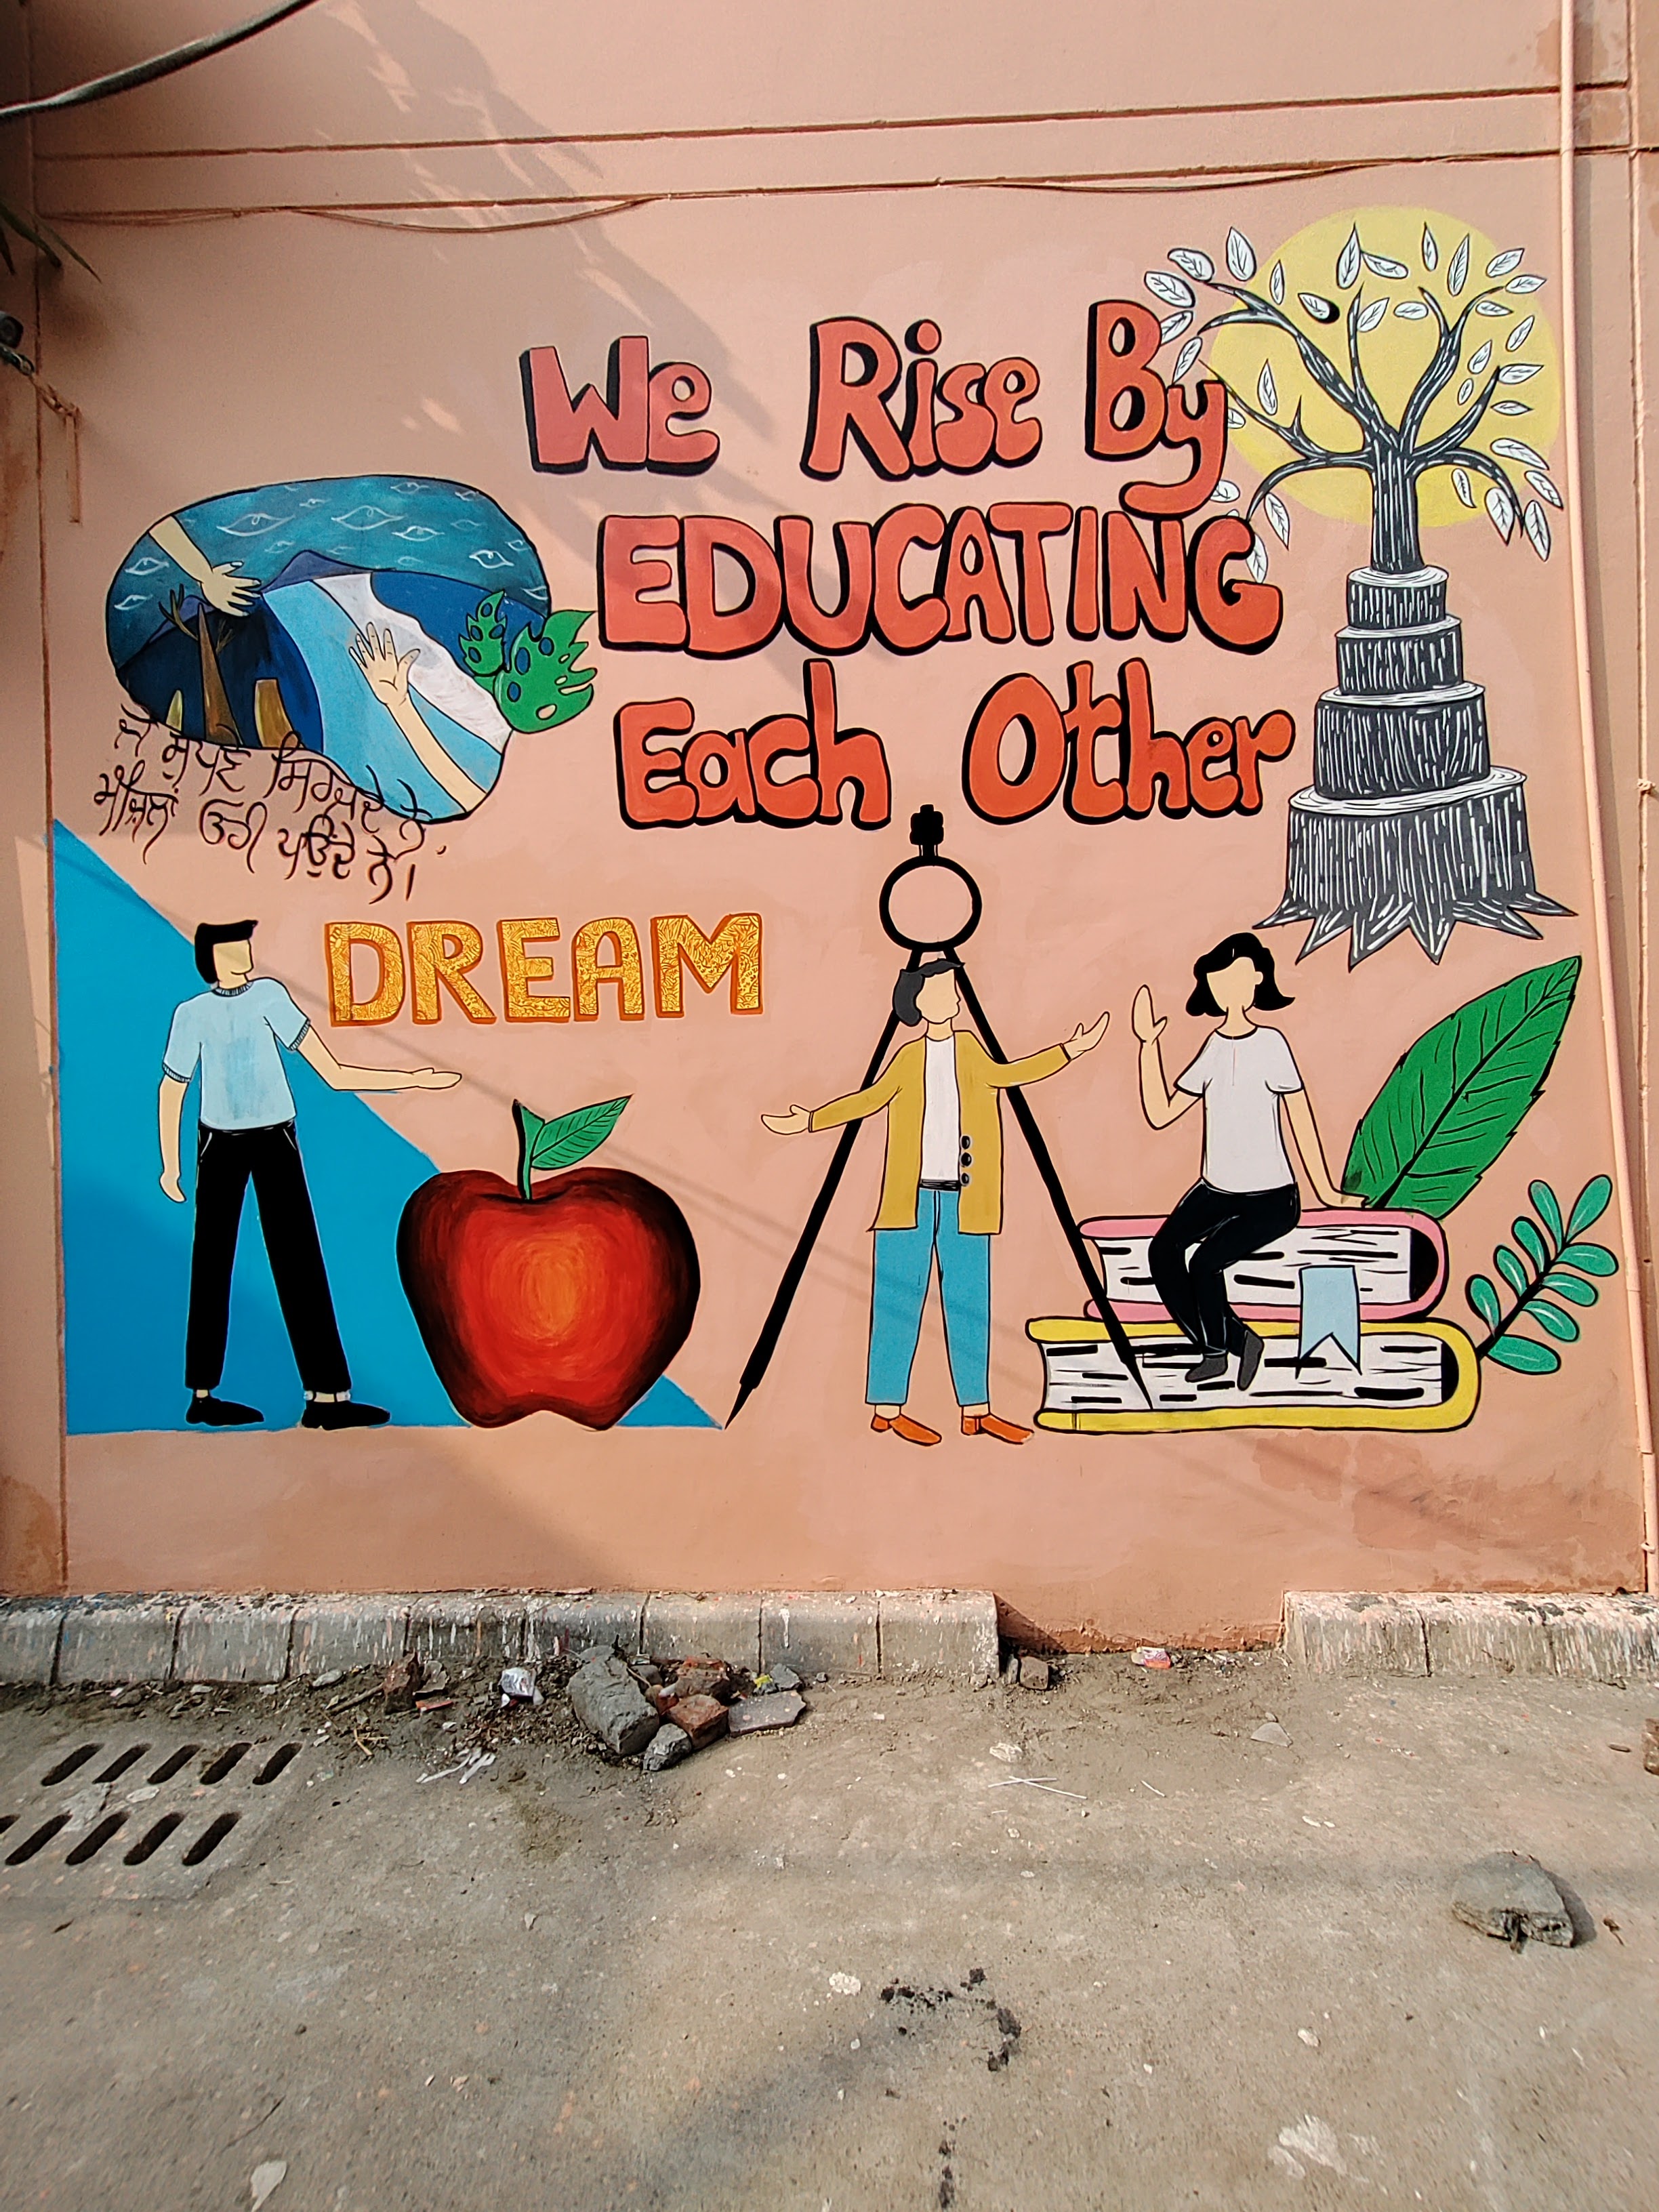 We Rise By
EDUCATING
Each Other
ਜੋ ਸੁਪਣੇ ਸਿਰਜਦੇ ਨੇ
ਮੰਜ਼ਿਲਾਂ ਉਹੀ ਪਾਉਂਦੇ ਨੇ।
DREAM